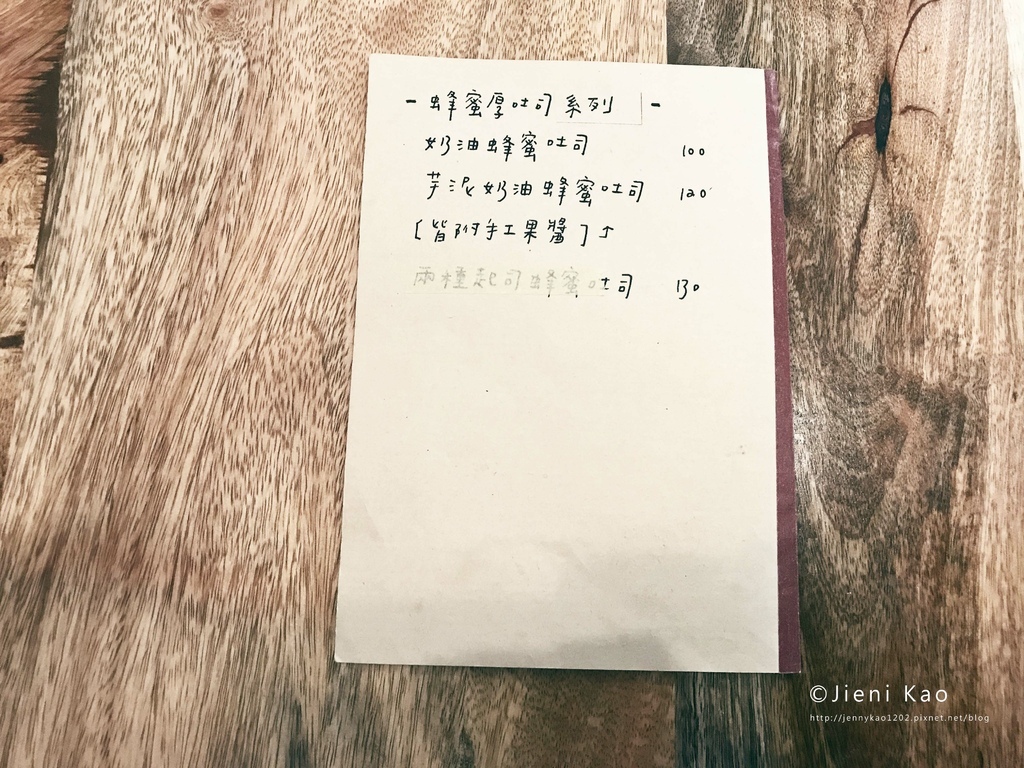 - 蜂蜜厚吐司系列 -
奶油蜂蜜吐司 100
芋泥奶油蜂蜜吐司 120
[皆附手工果醬]↑
兩種起司蜂蜜吐司 130
©Jieni Kao
http://jennykao1202.pixnet.net/blog